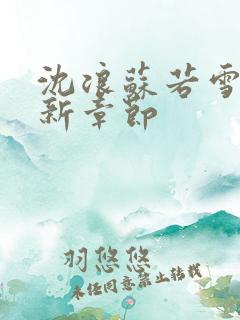 沈浪蘇若雪
新章節
羽悠悠
未经同意禁止转载